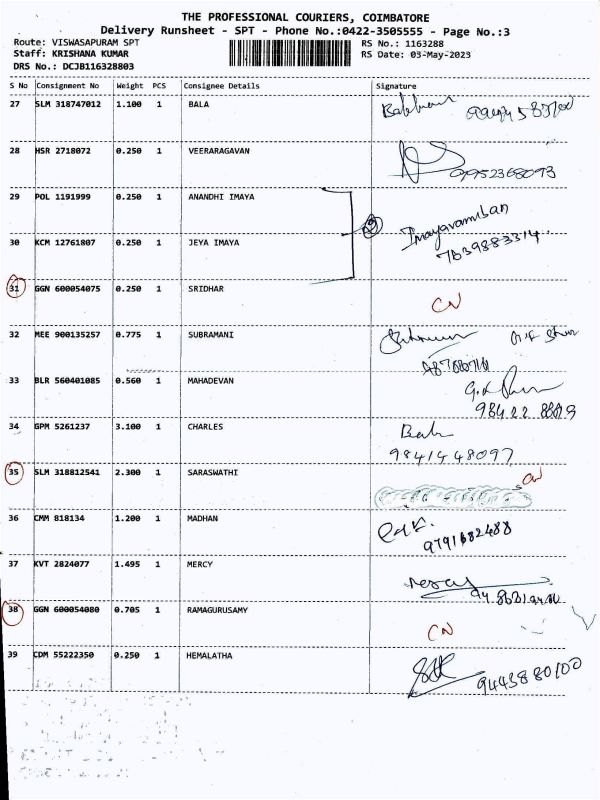 THE PROFESSIONAL COURIERS, COIMBATORE
Delivery Runsheet - SPT - Phone No.:0422-3505555 - Page No.:3
Route: VISWASAPURAM SPT RS No.: 1163288
Staff: KRISHANA KUMAR RS Date: 03-May-2023
DRS No.: DCJB116328803
S No Consignment No Weight PCS Consignee Details Signature
27 SLM 318747012 1.100 1 BALA
28 HSR 2718072 0.250 1 VEERARAGAVAN
9952368093
29 POL 1191999 0.250 1 ANANDHI IMAYA
Imayavaramban
30 KCM 12761807 0.250 1 JEYA IMAYA
7639883314
31 GGN 600054075 0.250 1 SRIDHAR
CN
32 MEE 900135257 0.775 1 SUBRAMANI
33 BLR 560401085 0.560 1 MAHADEVAN
34 GPM 5261237 3.100 1 CHARLES
9841448097
35 SLM 318812541 2.300 1 SARASWATHI
CN
36 CMM 818134 1.200 1 MADHAN
9791682488
37 KVT 2824077 1.495 1 MERCY
Mercy
38 GGN 600054080 0.705 1 RAMAGURUSAMY
CN
39 CDM 55222350 0.250 1 HEMALATHA
9443880100